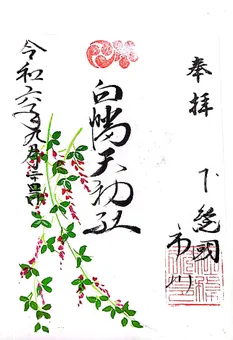 奉拝
下総國
市川
白幡天神社
令和六年九月二十四日